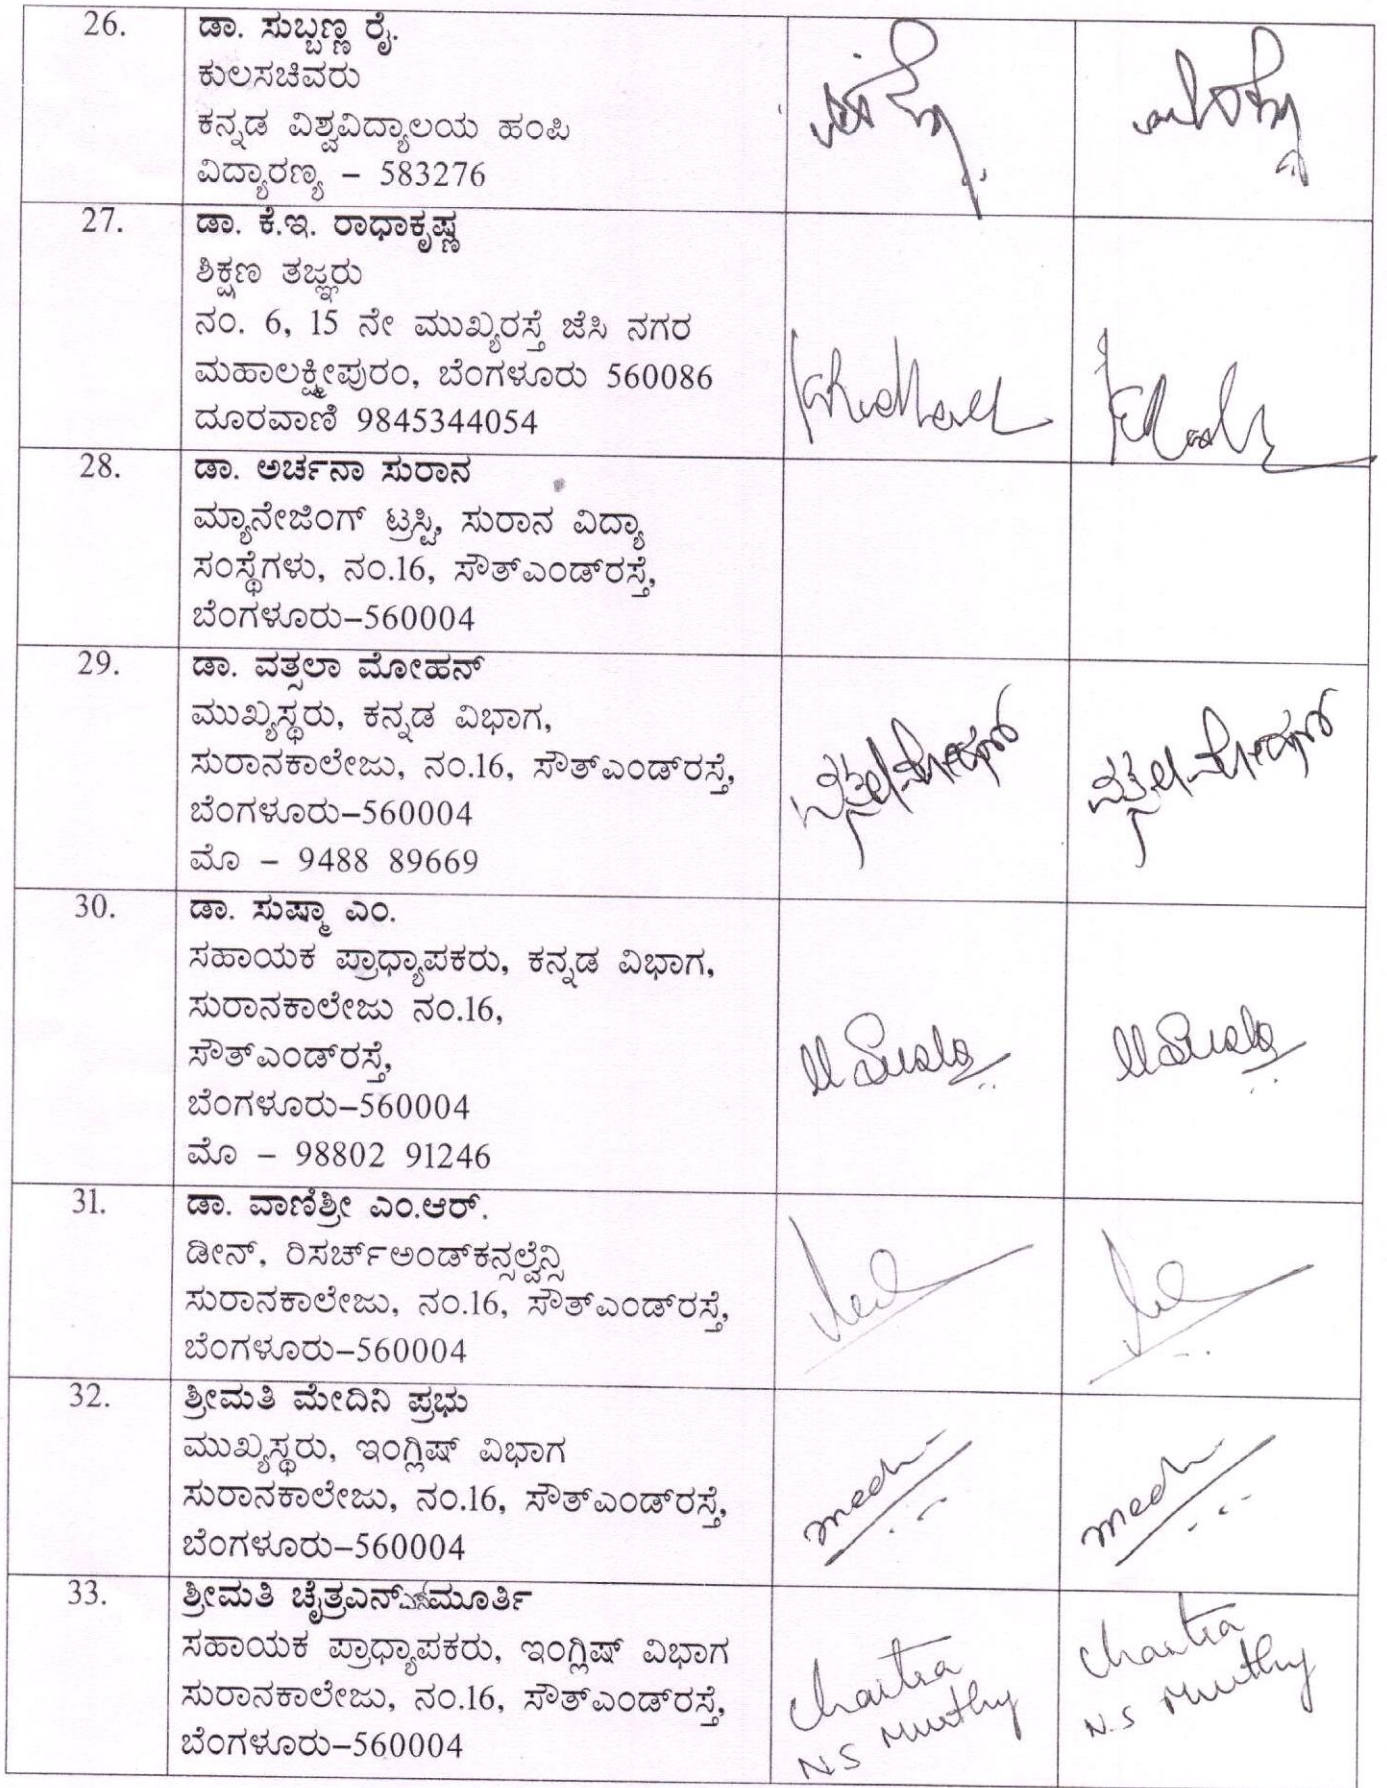 26.
ಡಾ. ಸುಬ್ಬಣ್ಣ ರೈ.
ಕುಲಸಚಿವರು
ಕನ್ನಡ ವಿಶ್ವವಿದ್ಯಾಲಯ ಹಂಪಿ
ವಿದ್ಯಾರಣ್ಯ – 583276
27.
ಡಾ. ಕೆ.ಇ. ರಾಧಾಕೃಷ್ಣ
ಶಿಕ್ಷಣ ತಜ್ಞರು
ನಂ. 6, 15 ನೇ ಮುಖ್ಯರಸ್ತೆ ಜೆಸಿ ನಗರ
ಮಹಾಲಕ್ಷ್ಮೀಪುರಂ, ಬೆಂಗಳೂರು 560086
ದೂರವಾಣಿ 9845344054
28.
ಡಾ. ಅರ್ಚನಾ ಸುರಾನ
ಮ್ಯಾನೇಜಿಂಗ್ ಟ್ರಸ್ಟಿ, ಸುರಾನ ವಿದ್ಯಾ
ಸಂಸ್ಥೆಗಳು, ನಂ.16, ಸೌತ್‌ಎಂಡ್‌ರಸ್ತೆ,
ಬೆಂಗಳೂರು–560004
29.
ಡಾ. ವತ್ಸಲಾ ಮೋಹನ್
ಮುಖ್ಯಸ್ಥರು, ಕನ್ನಡ ವಿಭಾಗ,
ಸುರಾನಕಾಲೇಜು, ನಂ.16, ಸೌತ್‌ಎಂಡ್‌ರಸ್ತೆ,
ಬೆಂಗಳೂರು–560004
ಮೊ – 9488 89669
ವತ್ಸಲಾ ಮೋಹನ್ ವತ್ಸಲಾ ಮೋಹನ್
30.
ಡಾ. ಸುಷ್ಮಾ ಎಂ.
ಸಹಾಯಕ ಪ್ರಾಧ್ಯಾಪಕರು, ಕನ್ನಡ ವಿಭಾಗ,
ಸುರಾನಕಾಲೇಜು ನಂ.16,
ಸೌತ್‌ಎಂಡ್‌ರಸ್ತೆ,
ಬೆಂಗಳೂರು–560004
ಮೊ – 98802 91246
31.
ಡಾ. ವಾಣಿಶ್ರೀ ಎಂ.ಆರ್.
ಡೀನ್, ರಿಸರ್ಚ್‌ಅಂಡ್‌ಕನ್ಸಲ್ಟೆನ್ಸಿ
ಸುರಾನಕಾಲೇಜು, ನಂ.16, ಸೌತ್‌ಎಂಡ್‌ರಸ್ತೆ,
ಬೆಂಗಳೂರು–560004
32.
ಶ್ರೀಮತಿ ಮೇದಿನಿ ಪ್ರಭು
ಮುಖ್ಯಸ್ಥರು, ಇಂಗ್ಲಿಷ್ ವಿಭಾಗ
ಸುರಾನಕಾಲೇಜು, ನಂ.16, ಸೌತ್‌ಎಂಡ್‌ರಸ್ತೆ,
ಬೆಂಗಳೂರು–560004
33.
ಶ್ರೀಮತಿ ಚೈತ್ರಎನ್‌ಎಸ್‌ಮೂರ್ತಿ
ಸಹಾಯಕ ಪ್ರಾಧ್ಯಾಪಕರು, ಇಂಗ್ಲಿಷ್ ವಿಭಾಗ
ಸುರಾನಕಾಲೇಜು, ನಂ.16, ಸೌತ್‌ಎಂಡ್‌ರಸ್ತೆ,
ಬೆಂಗಳೂರು–560004
Chaitra
N S Murthy
Chaitra
N.S Murthy